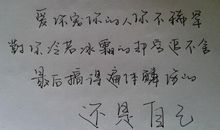 爱你宠你的人你不稀罕
对你冷若冰霜的却穷追不舍
最后搞得遍体鳞伤的
还是自己